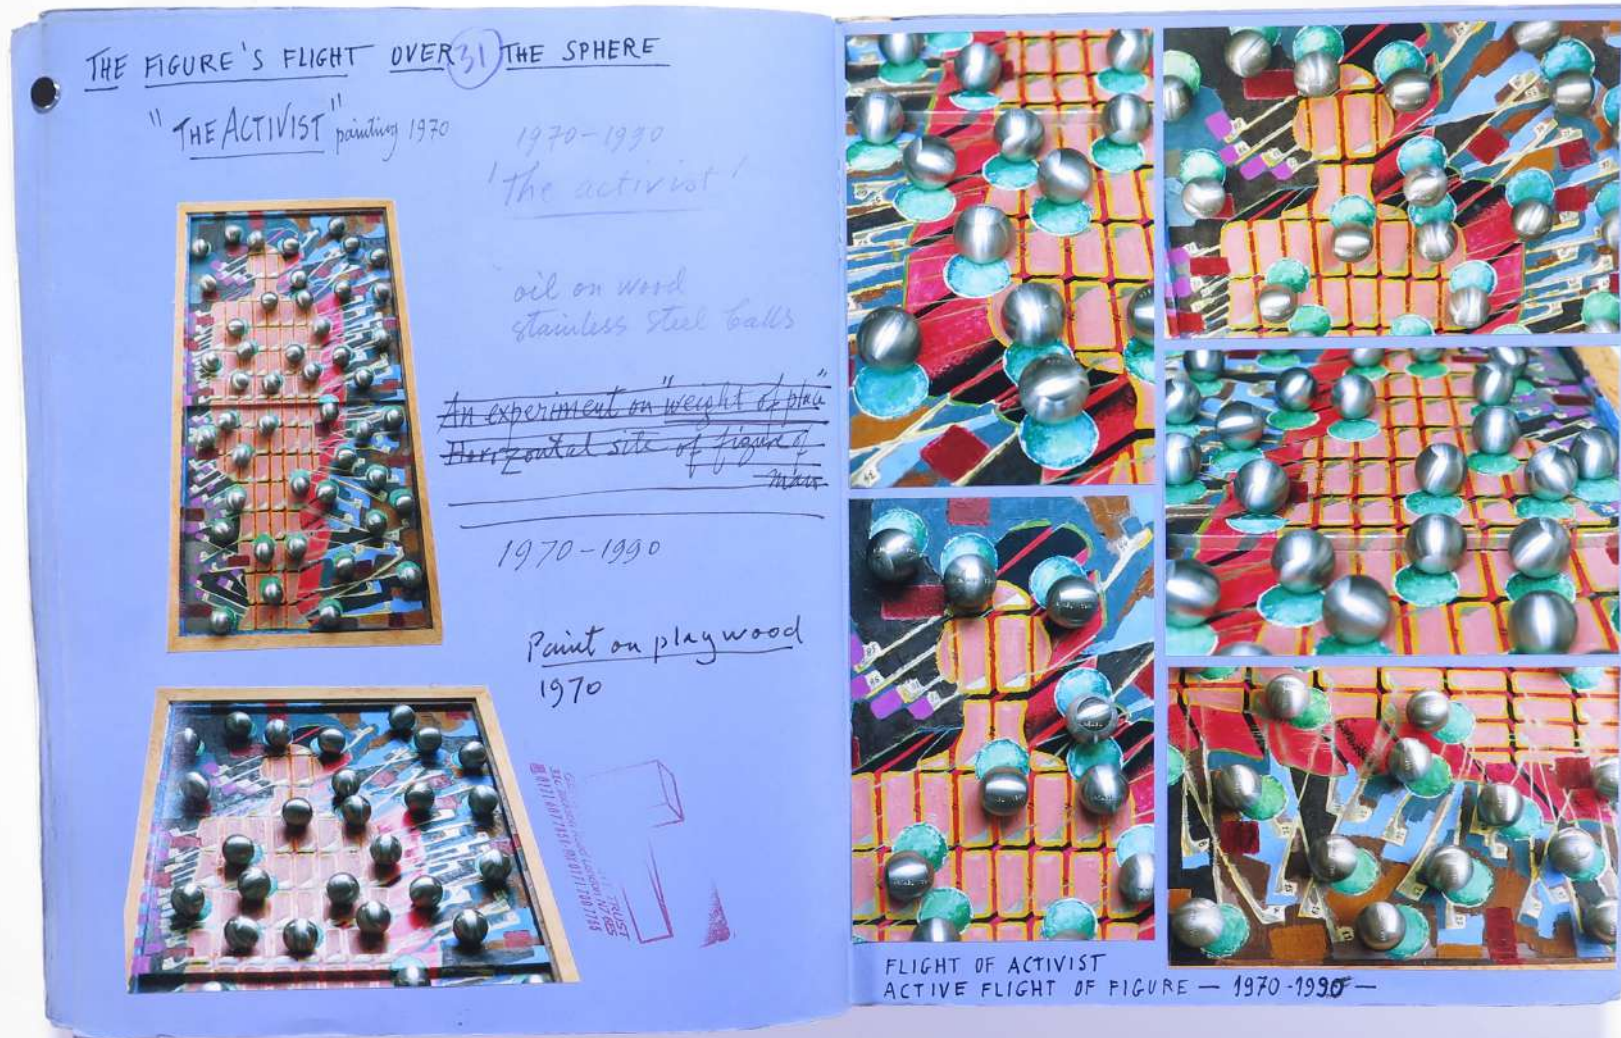 THE FIGURE'S FLIGHT OVER 31 THE SPHERE
"THE ACTIVIST" painting 1970
1970-1990
'the activist'
oil on wood
stainless steel balls
An experiment on "weight of place"
Horizontal site of figure of
man
1970-1990
Paint on playwood
1970
TRUST
FLIGHT OF ACTIVIST
ACTIVE FLIGHT OF FIGURE — 1970-1990 —